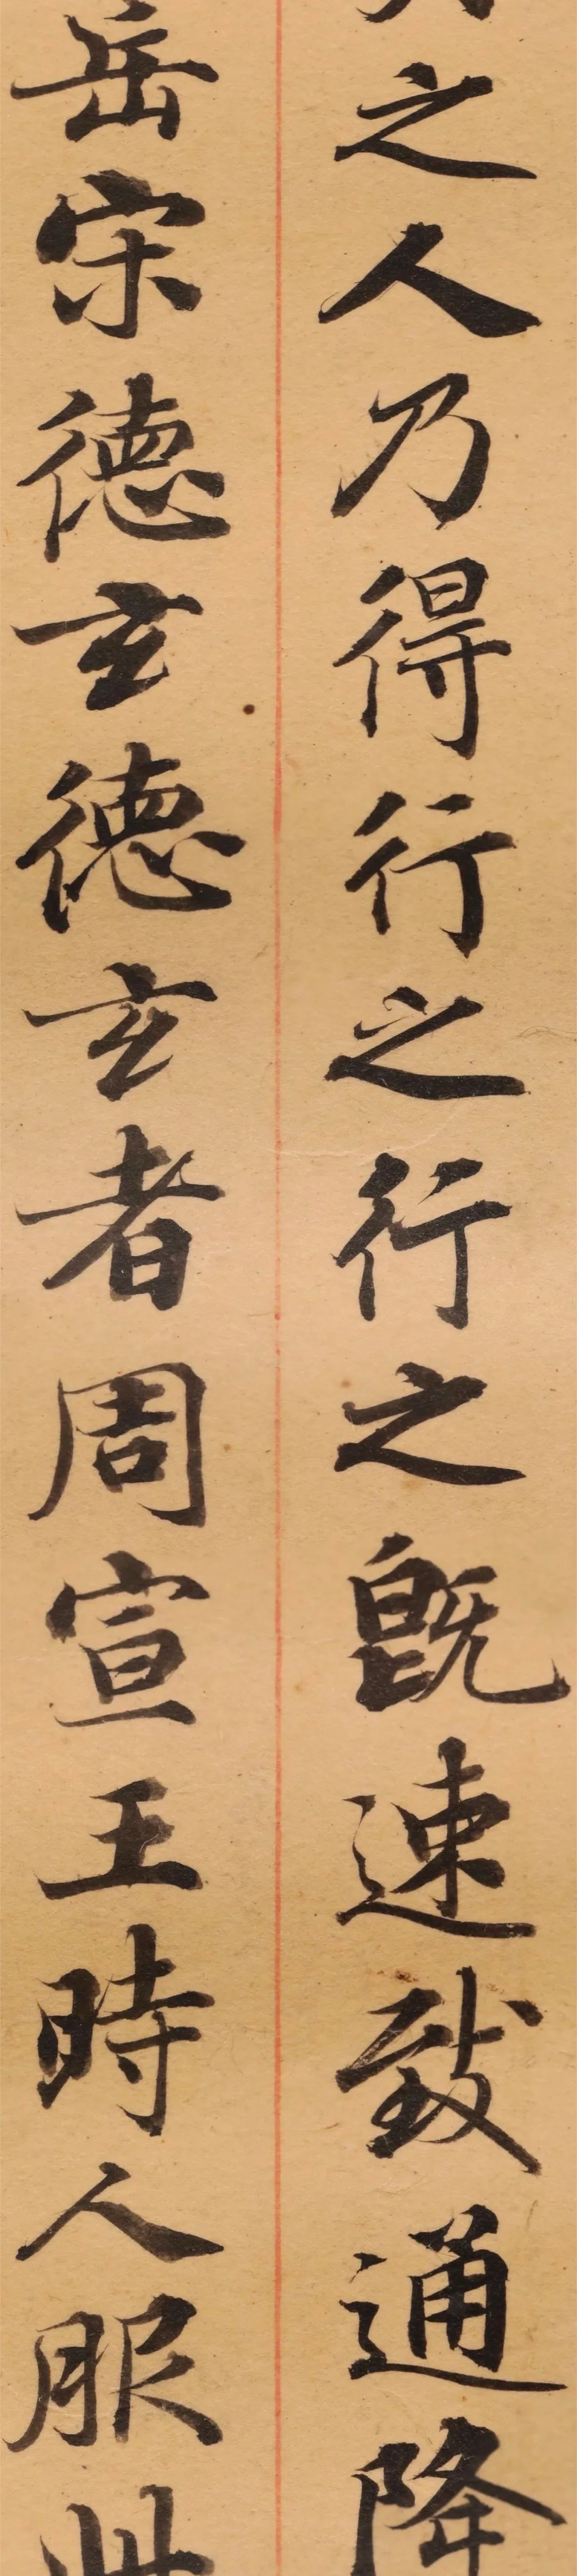 之人乃得行之行之既速致通降
岳宋德玄德玄者周宣王時人服此